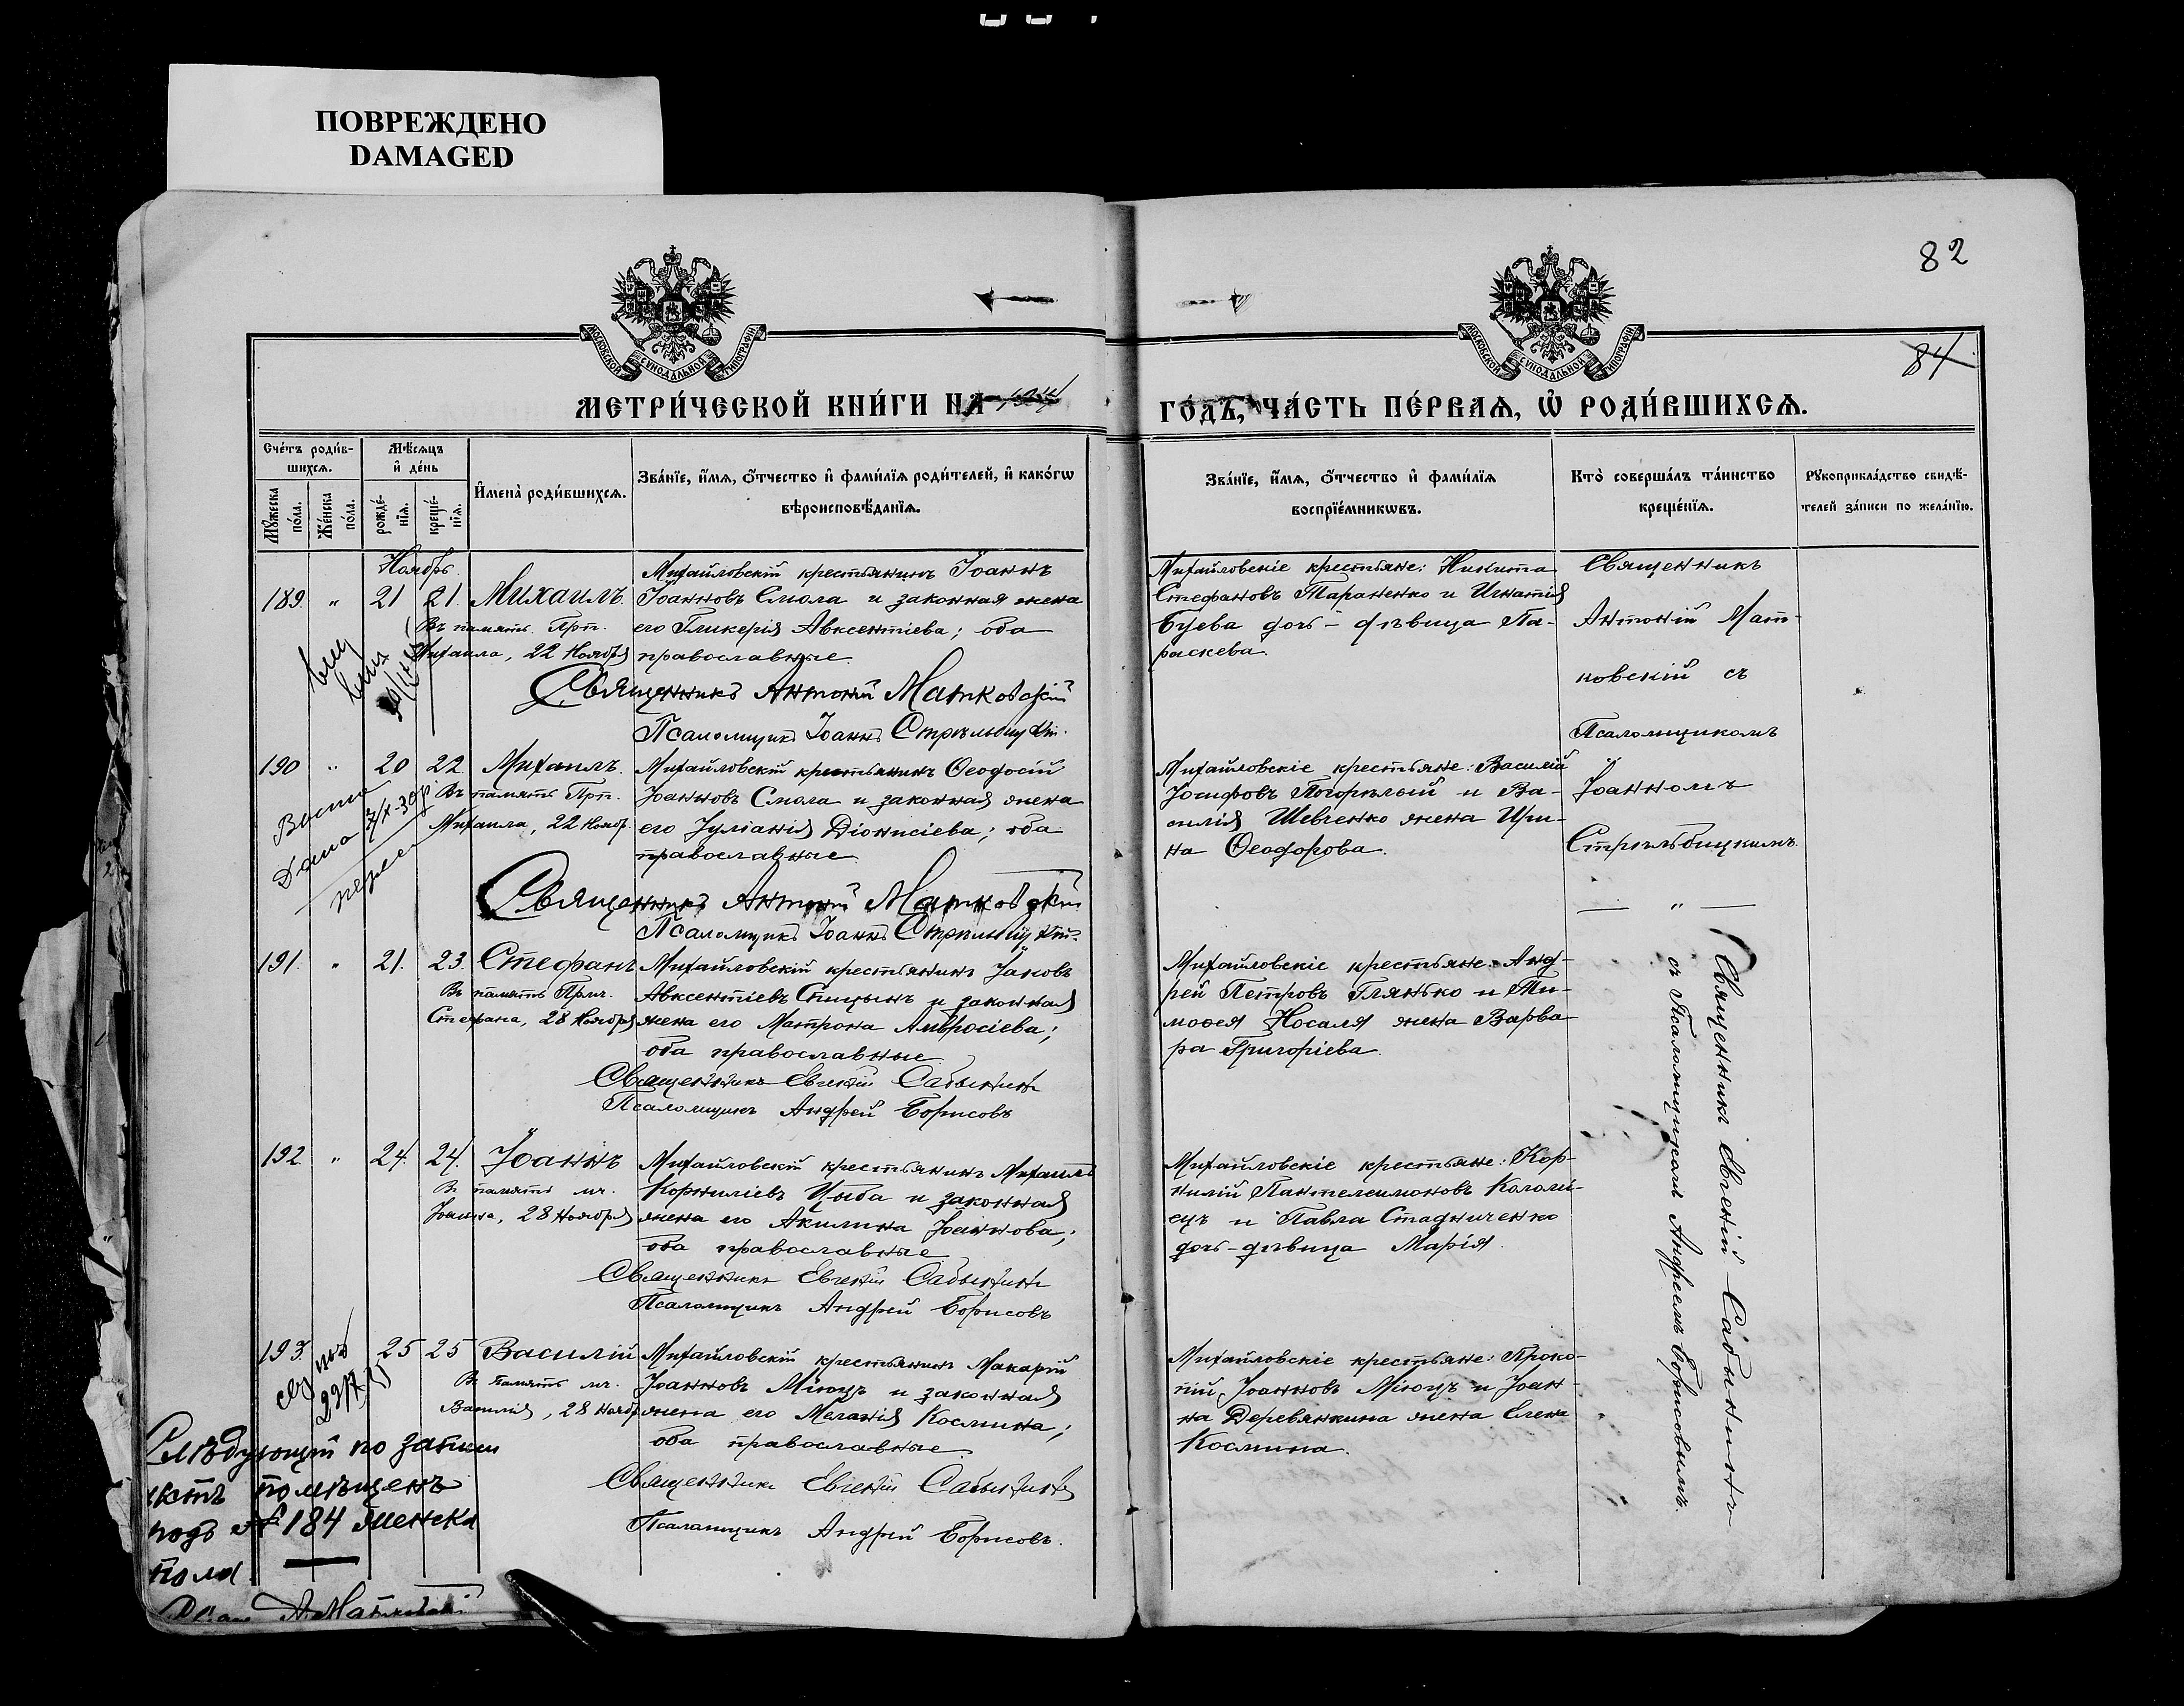 ПОВРЕЖДЕНО
DAMAGED
82
84
МОСКОВСКОЙ СѴНОДАЛЬНОЙ ТИПОГРАФІИ
МОСКОВСКОЙ СѴНОДАЛЬНОЙ ТИПОГРАФІИ
МЕТРИ́ЧЕСКОЙ КНИ́ГИ НА
ГО́ДЪ, ЧА́СТЬ ПЕ́РВАѦ, Ѡ҆ РОДИ́ВШИХСѦ.
Сче́тъ роди́в-
шихсѧ.
Мѣ́сѧцъ
и҆ де́нь
Мꙋ́жеска
по́ла.
Же́нска
по́ла.
рожде́-
нїѧ.
креще́-
нїѧ.
И҆мена̀ роди́вшихсѧ.
Зва́нїе, и҆́мѧ, ѻ҆́тчество и҆ фами́лїѧ роди́телей, и҆ како́гѡ
вѣроисповѣ́данїѧ.
Зва́нїе, и҆́мѧ, ѻ҆́тчество и҆ фами́лїѧ
воспрїе́мникѡвъ.
Кто̀ соверша́лъ та́инство
креще́нїѧ.
Рꙋкоприкла́дство свидѣ́-
телей за́писи по жела́нїю.
Ноябрь.
189. " 21 21. Михаилъ.
Въ память Прп.
Михаила, 22 Ноября
Михайловскій крестьянинъ Іоаннъ
Іоанновъ Смола и законная жена
его Гликерія Авксентіева; оба
православные.
Священникъ Антоній Матковскій
Псаломщикъ Іоаннъ Стрѣльбицкій.
Михайловскіе крестьяне: Никита
Стефановъ Тараненко и Игнатія
Буева дочь-дѣвица Па-
раскева.
Священникъ
Антоній Мат-
ковскій съ
Псаломщикомъ
Іоанномъ
Стрѣльбицкимъ.
190 " 20 22. Михаилъ.
Въ память Прп.
Михаила, 22 Ноябр.
Михайловскій крестьянинъ Ѳеодосій
Іоанновъ Смола и законная жена
его Іуліанія Діонисіева; оба
православные.
Священникъ Антоній Матковскій
Псаломщикъ Іоаннъ Стрѣльбицкій.
Михайловскіе крестьяне: Василій
Іосифовъ Погорѣлый и Ва-
силія Шевченко жена Ири-
на Ѳеодорова.
— " —
191. " 21. 23. Стефанъ
Въ память Прмч.
Стефана, 28 Ноября
Михайловскій крестьянинъ Іаковъ
Авксентіевъ Спицынъ и законная
жена его Матрона Амвросіева;
оба православные.
Священникъ Евгеній Сабынинъ
Псаломщикъ Андрей Борисовъ
Михайловскіе крестьяне: Анд-
рей Петровъ Глянько и Ти-
моѳея Носаля жена Варва-
ра Григоріева.
Священникъ Евгеній Сабынинъ
съ Псаломщикомъ Андреемъ Борисовымъ.
192. " 24. 24. Іоаннъ
Въ память мч.
Іоанна, 28 Ноября
Михайловскій крестьянинъ Михаилъ
Корниліевъ Цыба и законная
жена его Акилина Іоаннова;
оба православные
Священникъ Евгеній Сабынинъ
Псаломщикъ Андрей Борисовъ
Михайловскіе крестьяне: Кор-
нилій Пантелеимоновъ Коломі-
ецъ и Павла Стадниченко
дочь-дѣвица Марія.
193. 25 25 Василій
Въ память мч.
Василія, 28 Ноябр.
Михайловскій крестьянинъ Макарій
Іоанновъ Міюцъ и законная
жена его Меланія Космина;
оба православные
Священникъ Евгеній Сабынинъ
Псаломщикъ Андрей Борисовъ.
Михайловскіе крестьяне: Проко-
пій Іоанновъ Міюцъ и Іоан-
на Деревянкина жена Елена
Космина.
Слѣдующій по записи
актъ помѣщенъ
подъ № 184 женска
пола